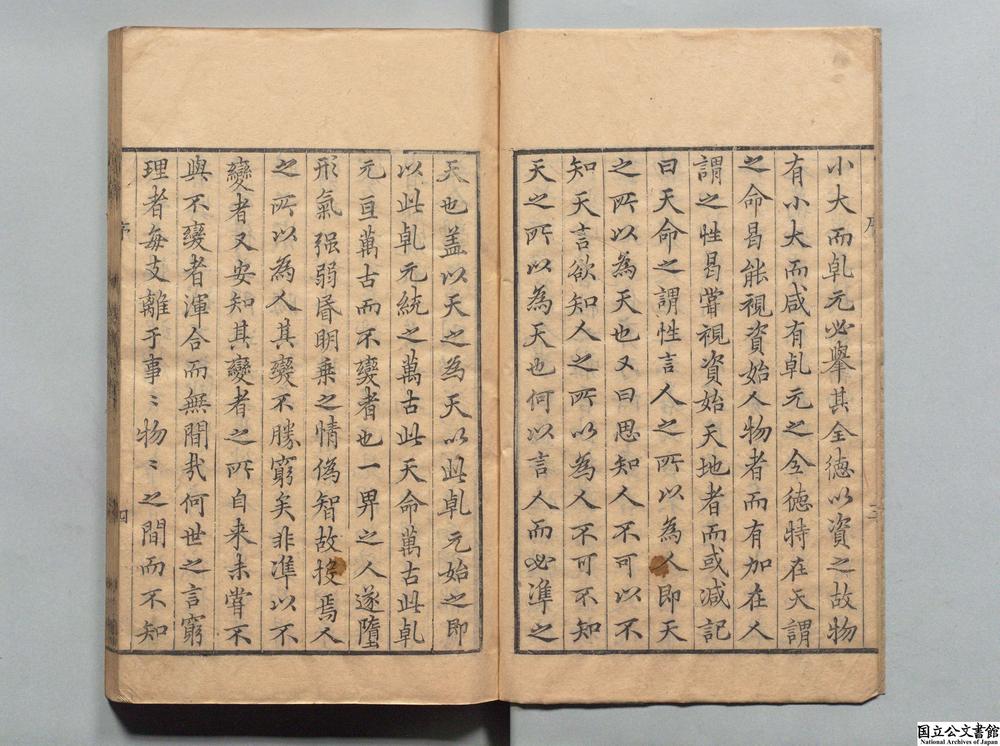 小大而乹元必舉其全徳以資之故物
有小大而咸有乹元之全徳特在天謂
之命曷能視資始人物者而有加在人
謂之性曷甞視資始天地者而或减記
曰天命之謂性言人之所以為人即天
之所以為天也又曰思知人不可以不
知天言欲知人之所以為人不可不知
天之所以為天也何以言人而必準之
天也盖以天之為天以此乹元始之即
以此乹元統之萬古此天命萬古此乹
元亘萬古而不變者也一畀之人遂墮
形氣强弱昏明乗之情偽智故投焉人
之所以為人其變不勝窮矣非準以不
變者又安知其變者之所自来未甞不
與不變者渾合而無間㦲何世之言窮
理者每支離于事〻物〻之間而不知
序
四
国立公文書館
National Archives of Japan